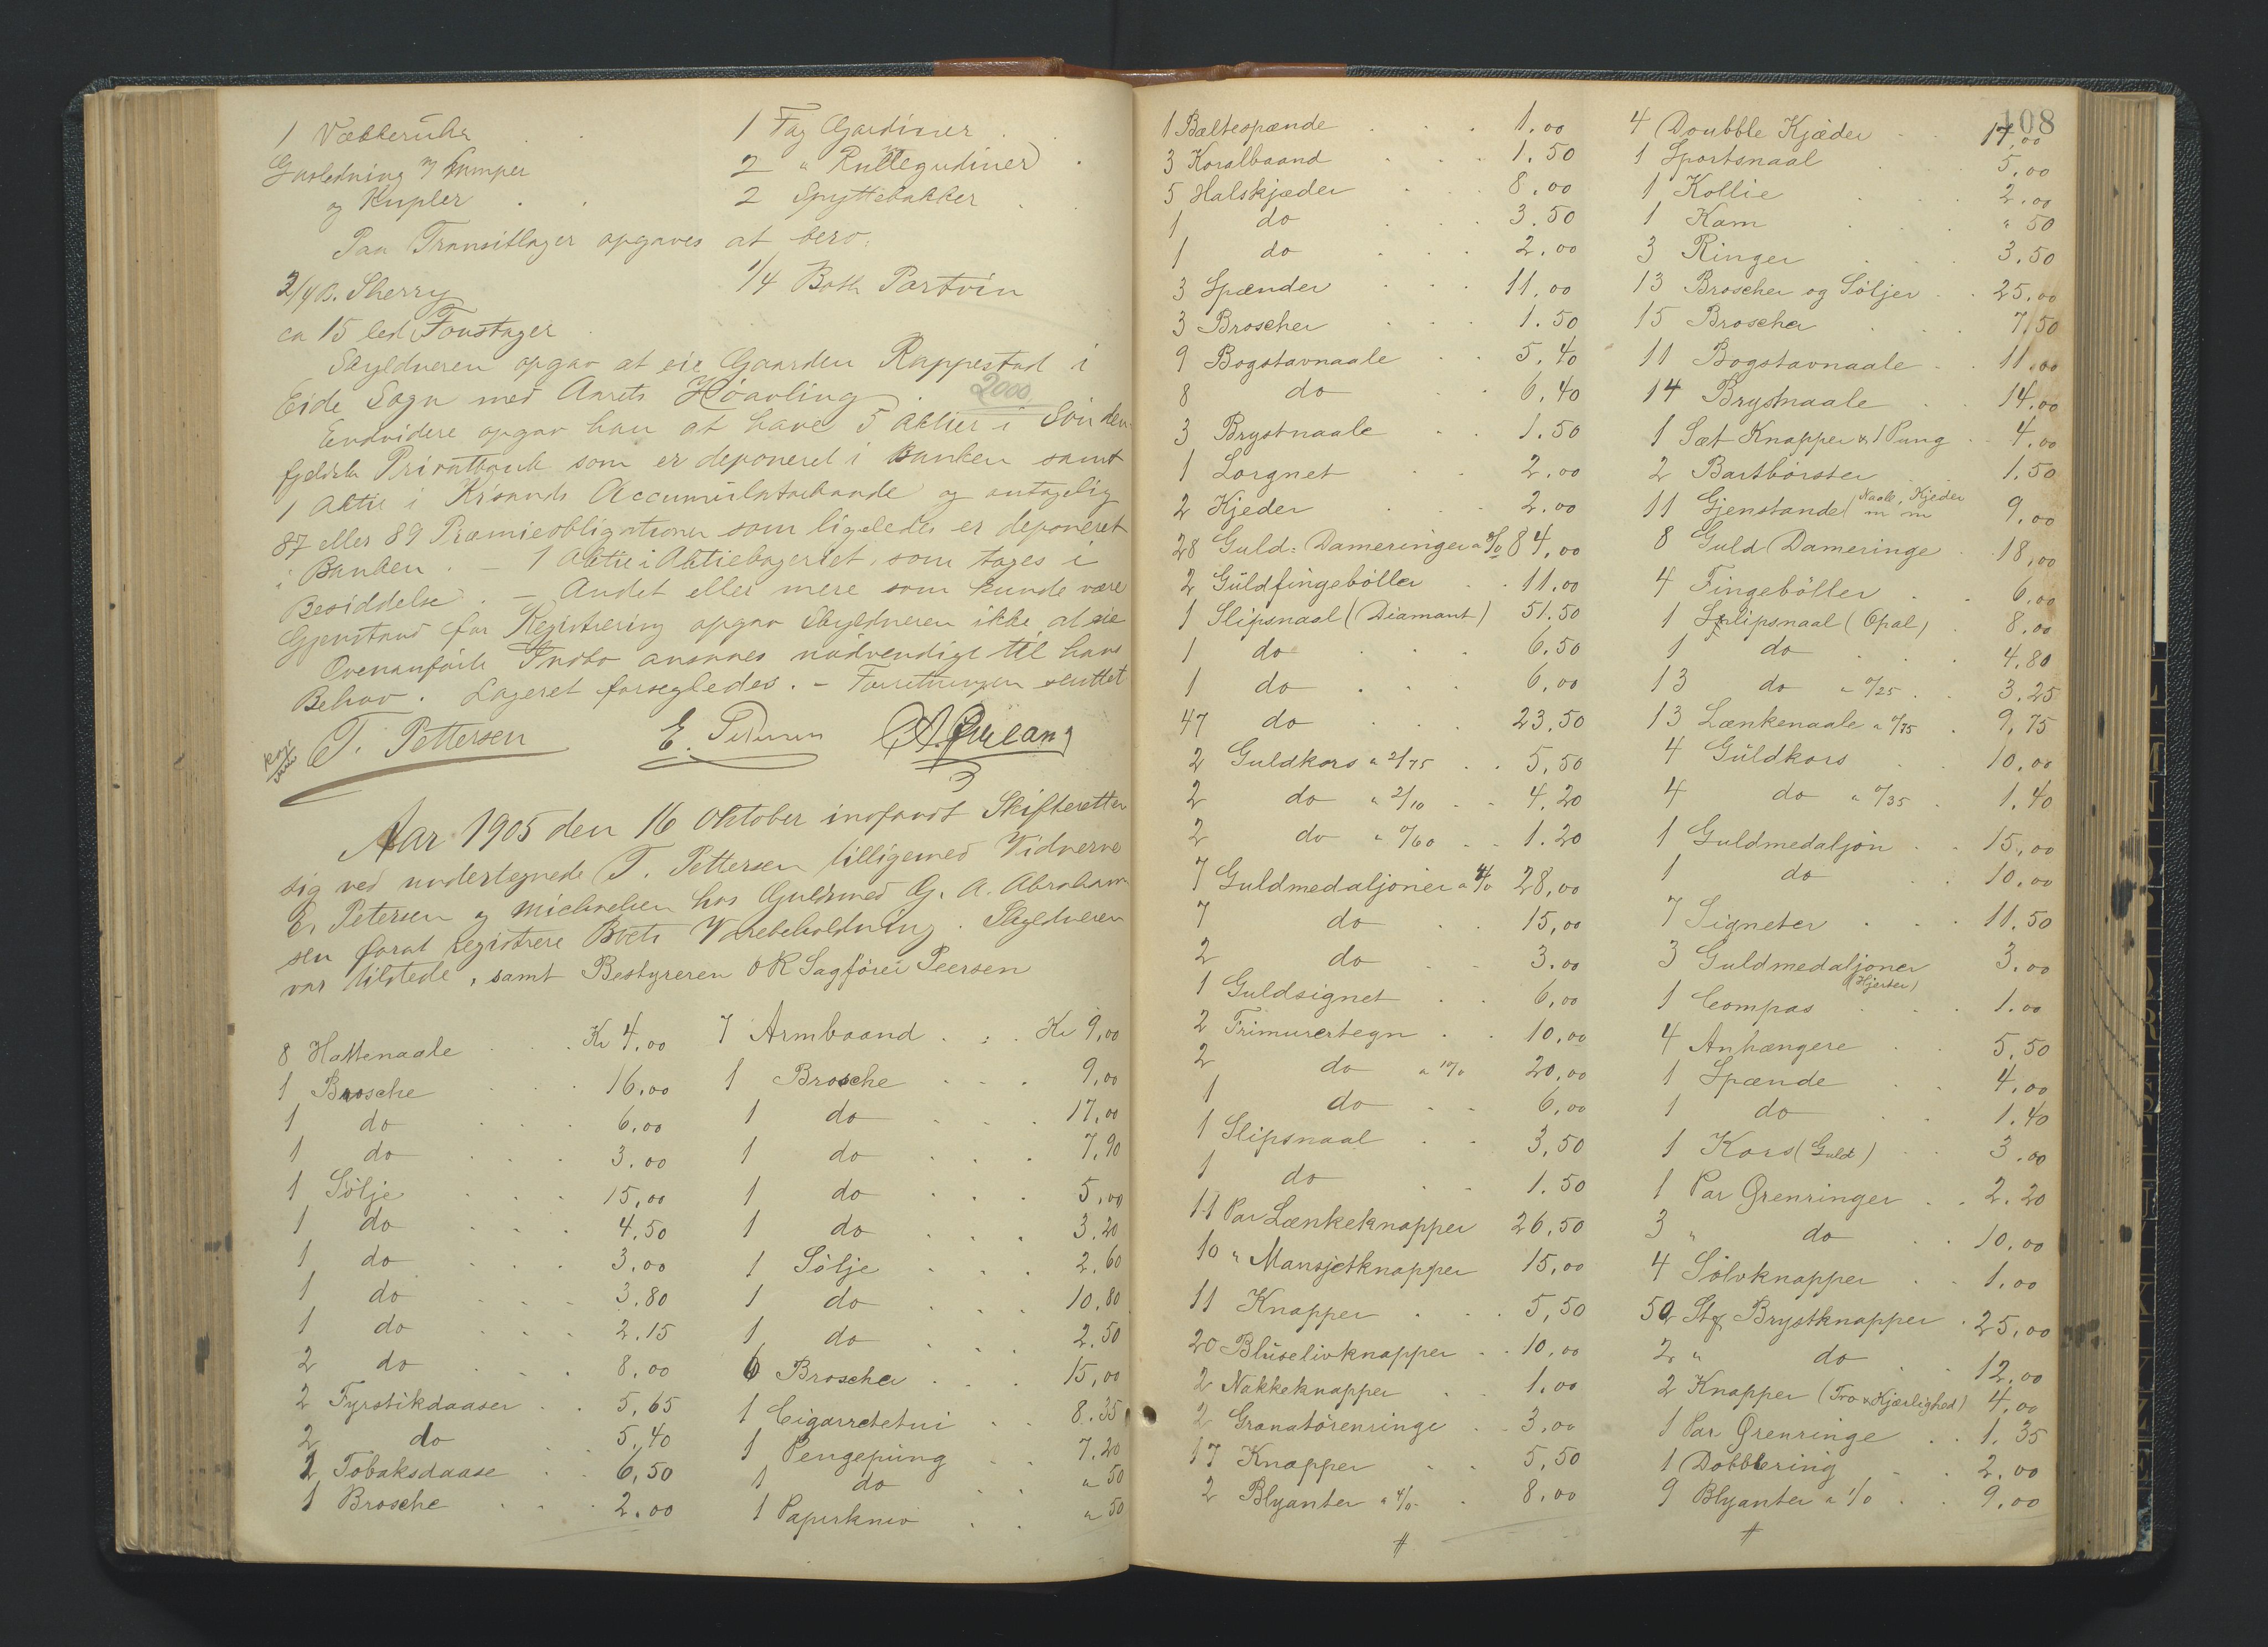 1 Vækkeruhr
1 Fag Gardiner
Gasledning m/ Lamper
2 " Rullegardiner
og Kupler
2 Spyttebakker
Paa Transitlager opgaves at bero:
2/4 B. Sherry
1/4 Both Portvin
ca 15 led. Foustager
Skyldneren opgav at eie Gaarden Rappestad i
Eide Sogn med Aarets
2000,
Endvidere opgav han at have 5 Aktier i Sønden-
fjeldske Privatbank som er deponeret i Banken samt
1 Aktie i Kr.sands og antagelig
87 eller 89 Præmieobligationer som ligeledes er deponeret
i Banken. – 1 Aktie i Aktiebageriet, som tages i
Besiddelse. – Andet eller mere som kunde være
Gjenstand for Registrering opgav Skyldneren ikke at eie
Ovenanførte Indbo ansaaes nødvendigt til hans
Behov. Lageret forsegledes. – Forretningen sluttet
T. Pettersen
E. Petersen
Aar 1905 den 16 Oktober indfandt Skifteretten
sig ved undertegnede T. Pettersen tilligemed Vidnerne
E. Petersen og Michaelsen hos Guldsmed G. A. Abraham-
sen forat registrere Boets Varebeholdning. Skyldneren
var tilstede, samt Bestyreren OR Sagfører Peersen
8 Hattenaale Kr 4,00
1 Brosche 16,00
1 do 6,00
1 do 3,00
1 Sølje 15,00
1 do 4,50
1 do 3,00
1 do 3,80
1 do 2,15
2 do 8,00
2 Fyrstikdaaser 5,65
2 do 5,40
1 Tobaksdaase 6,50
1 Brosche 2,00
7 Armbaand Kr 9,00
1 Brosche 9,00
1 do 17,00
1 do 7,90
1 do 5,00
1 do 3,20
1 Sølje 2,60
1 do 10,80
1 do 2,50
6 Broscher 15,00
1 Cigarretetui 8,35
1 Pengepung 7,20
1 do " 50
1 Papirkniv " 50
1 Bæltespænde 1,00
3 Koralbaand 1.50
5 Halskjæder 8,00
1 do 3.50
1 do 2,00
3 Spænder 11,00
3 Broscher 1.50
9 Bogstavnaale 5.40
8 do 6,40
3 Brystnaale 1.50
1 Lorgnet 2,00
2 Kjeder 2,00
28 Guld: Dameringer a 3/0 84,00
2 Guldfingebøller 11,00
1 Slipsnaal (Diamant) 51.50
1 do 6.50
1 do 6,00
47 do 23,50
2 Guldkors a 2/75 5,50
2 do a 2/10 4,20
2 do a 0/60 1.20
7 Guldmedaljoner a 4/0 28,00
7 do 15,00
2 do 3.00
1 Guldsignet 6,00
2 Frimurertegn 10,00
2 do a 10/0 20,00
1 do 6,00
1 Slipsnaal 3,50
1 do 1.50
11 Par Lænkeknapper 26,50
10 " Mansjetknapper 15,00
11 Knapper 5,50
20 Bluselivknapper 10,00
2 Nakkeknapper 1,00
2 Granatørenringe 3,00
17 Knapper 5,50
2 Blyanter a 4/0 8,00
#
108
4 Doubble Kjæder 17,00
1 Sportsnaal 5,00
1 Kollie 2,00
1 Kam " 50
3 Ringer 3.50
13 Broscher og Søljer 25,00
15 Broscher 7,50
11 Bogstavnaale 11,00
14 Brystnaale 14,00
1 Sæt Knapper & 1 Pung 4,00
2 Bartbørster 1.50
11 Gjenstande (Naale, Kjeder m m 9,00
8 Guld Dameringe 18,00
4 Fingebøller 6,00
1 Slipsnaal (Opal) 8,00
1 do 4.80
13 do a 0/25 3.25
13 Lænkenaale a 0/75 9,75
4 Guldkors 10,00
4 do a 0/35 1.40
1 Guldmedaljon 15,00
1 do 10,00
7 Signeter 11.50
3 Guldmedaljoner (Hjerter) 3.00
1 Compas 1.00
4 Anhængere 5.50
1 Spænde 4,00
1 do 1.40
1 Kors (Guld) 3.00
1 Par Ørenringer 2.20
3 " do 10,00
4 Sølvknapper 1,00
50 Stk Brystknapper 25,00
2 " do 12,00
2 Knapper (Tro & Kjærlighed) 4,00
1 Par Ørenringe 1.35
1 Dobblering 2,00
9 Blyanter a 1/0 9,00
#